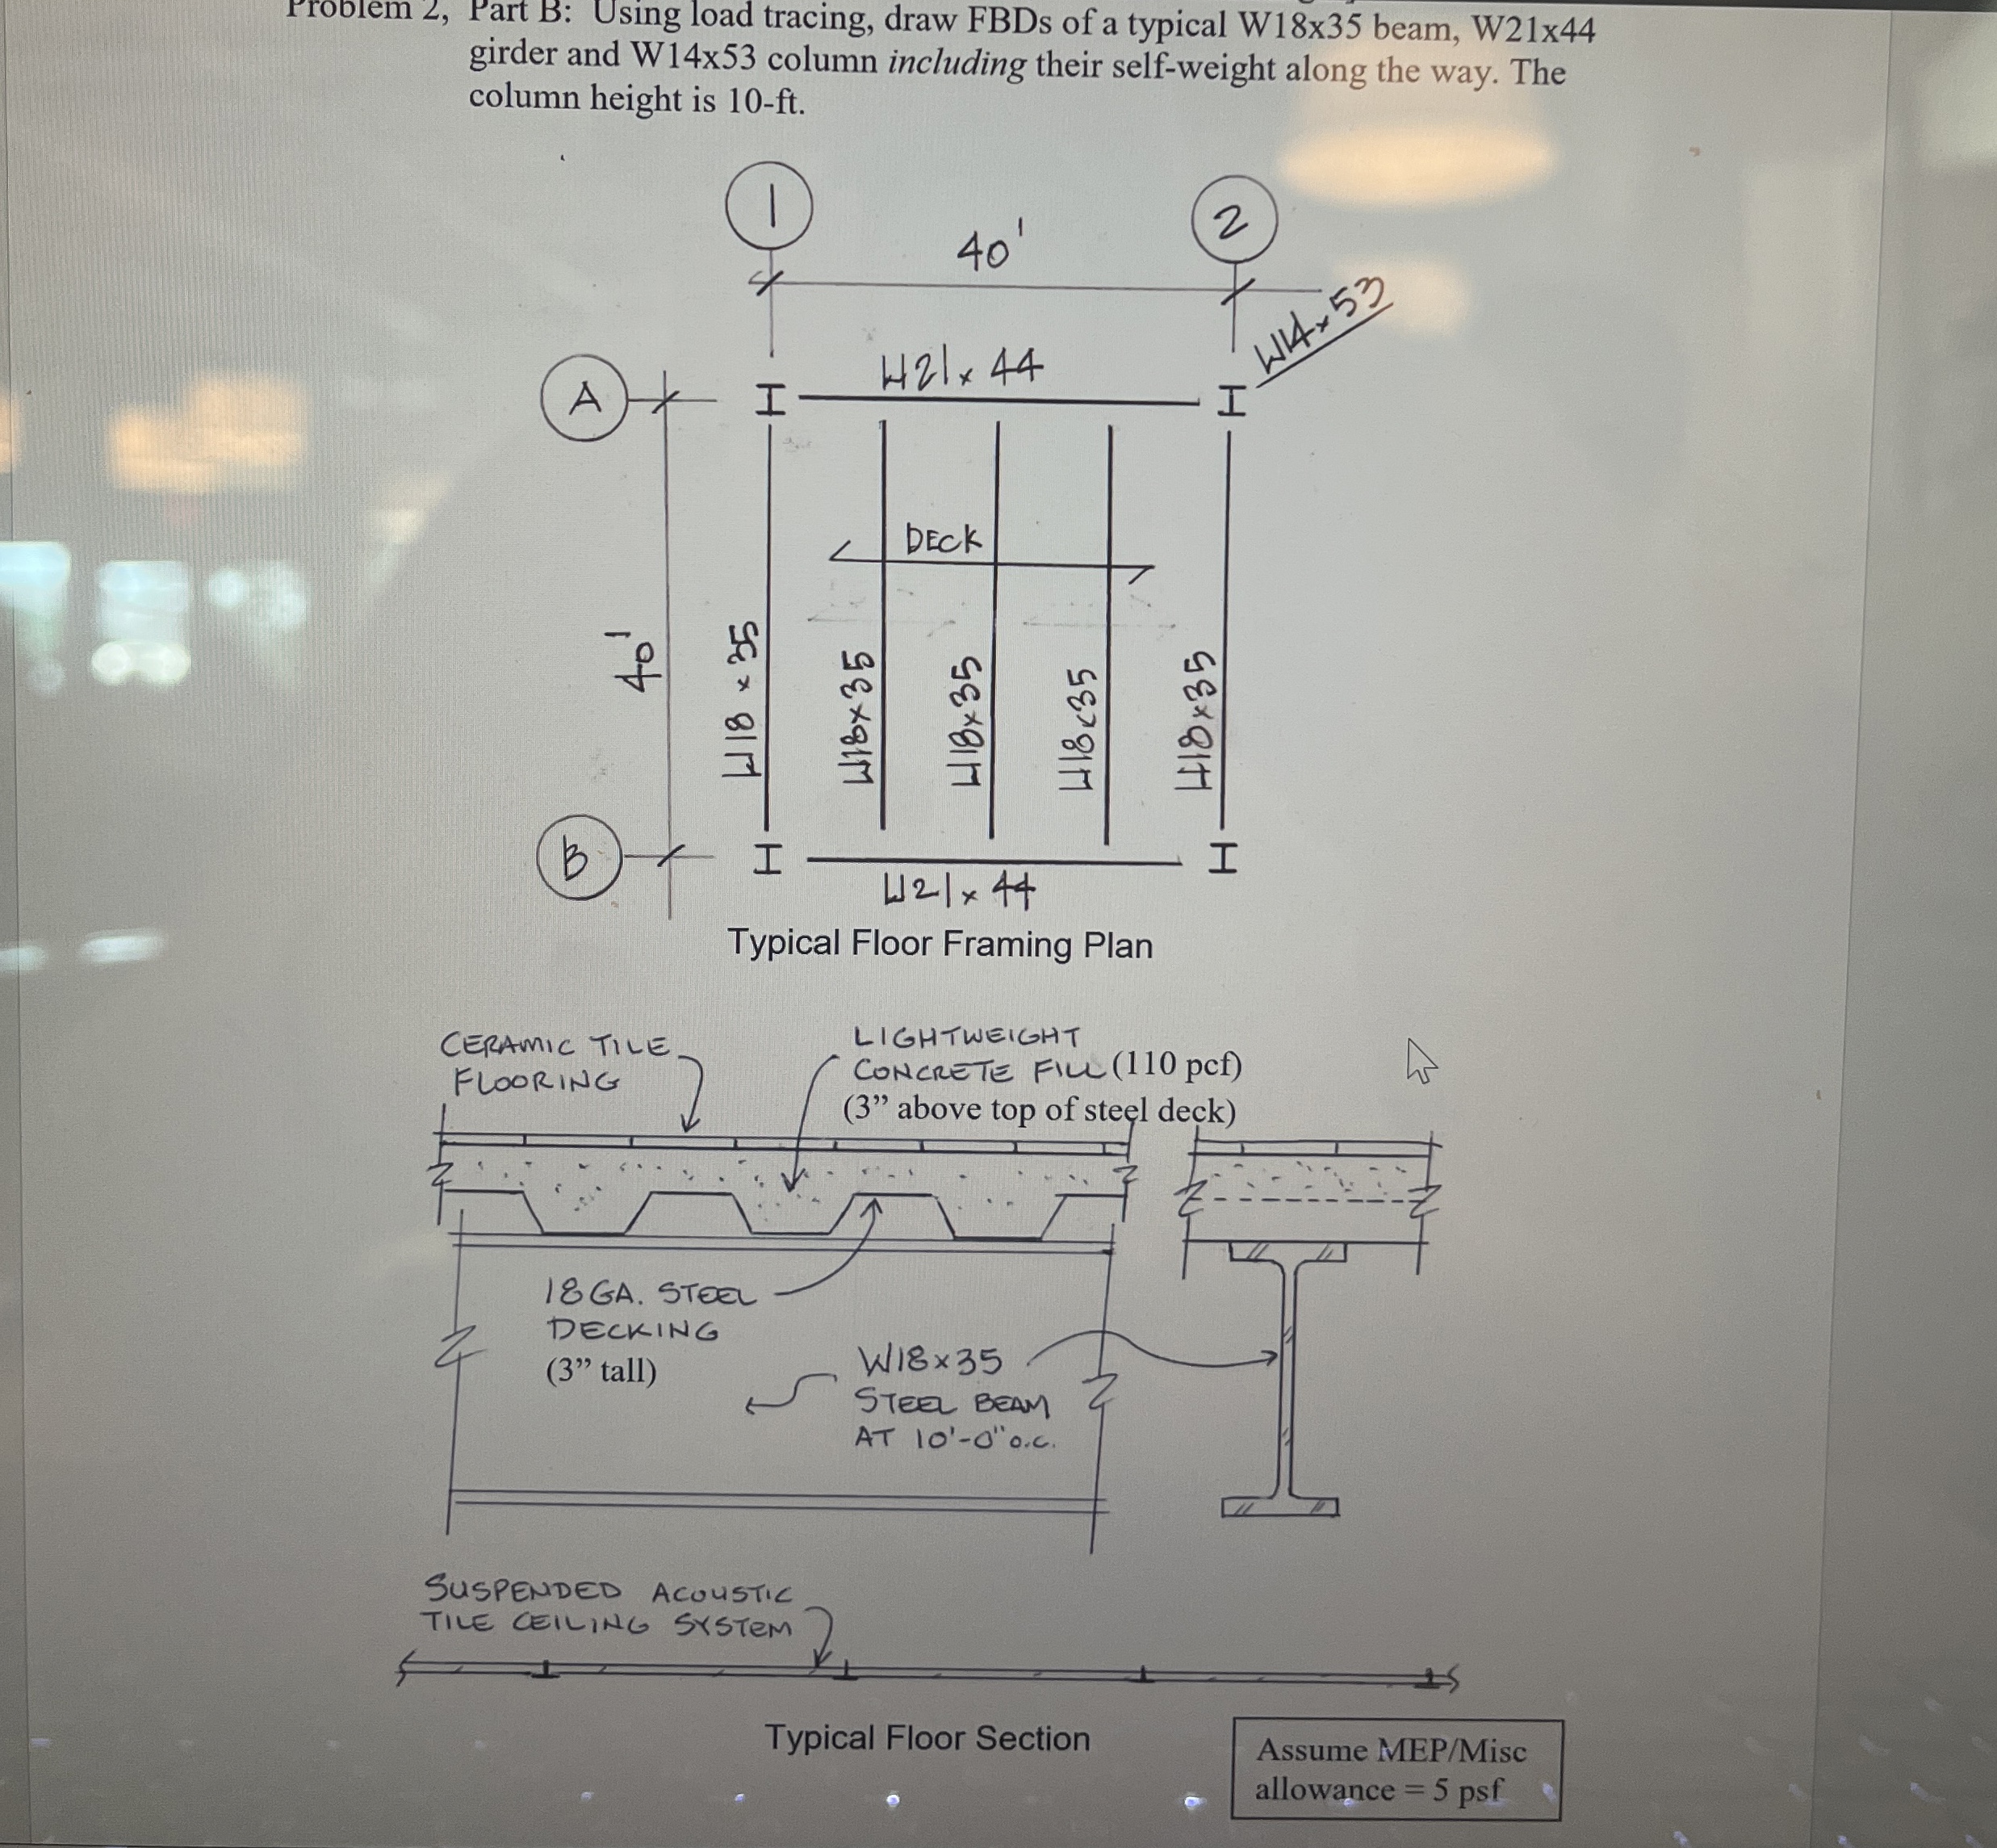 Problem 2, Part B: Using load tracing, draw FBDs of a typical W18x35 beam, W21x44
girder and W14x53 column including their self-weight along the way. The
column height is 10-ft.
1
2
40'
W14x53
A
W21x44
DECK
40'
W18x35
W18x35
W18x35
W18x35
W18x35
B
W21x44
Typical Floor Framing Plan
CERAMIC TILE
FLOORING
LIGHTWEIGHT
CONCRETE FILL (110 pcf)
(3” above top of steel deck)
18 GA. STEEL
DECKING
(3” tall)
W18x35
STEEL BEAM
AT 10'-0" o.c.
SUSPENDED ACOUSTIC
TILE CEILING SYSTEM
Typical Floor Section
Assume MEP/Misc
allowance = 5 psf